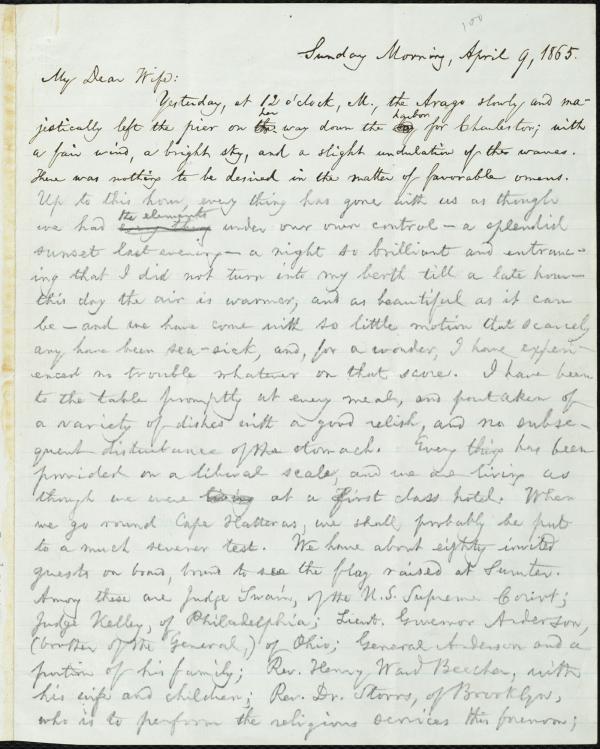 100
Sunday Morning, April 9, 1865.
My Dear Wife:
Yesterday, at 12 o'clock, M., the Arago slowly and ma-
jestically left the pier on the her way down the bay harbor for Charleston; with
a fair wind, a bright sky, and a slight undulation of the waves.
There was nothing to be desired in the matter of favorable omens.
Up to this hour, every thing has gone with us as though
we had every thing the elements under our own control — a splendid
sunset last evening — a night so brilliant and entranc-
ing that I did not turn into my berth till a late hour —
this day the air is warmer, and as beautiful as it can
be — and we have come with so little motion that scarcely
any have been sea-sick, and, for a wonder, I have experi-
enced no trouble whatever on that score. I have been
to the table promptly at every meal, and partaken of
a variety of dishes with a good relish, and no subse-
quent disturbance of the stomach. Every thing has been
provided on a liberal scale, and we are living as
though we were living at a first class hotel. When
we go round Cape Hatteras, we shall probably be put
to a much severer test. We have about eighty invited
guests on board, bound to see the flag raised at Sumter.
Among these are Judge Swain, of the U.S. Supreme Court;
Judge Kelley, of Philadelphia; Lieut. Governor Anderson,
(brother of the General,) of Ohio; General Anderson and a
portion of his family; Rev. Henry Ward Beecher, with
his wife and children; Rev. Dr. Storrs, of Brooklyn,
who is to perform the religious services this forenoon;